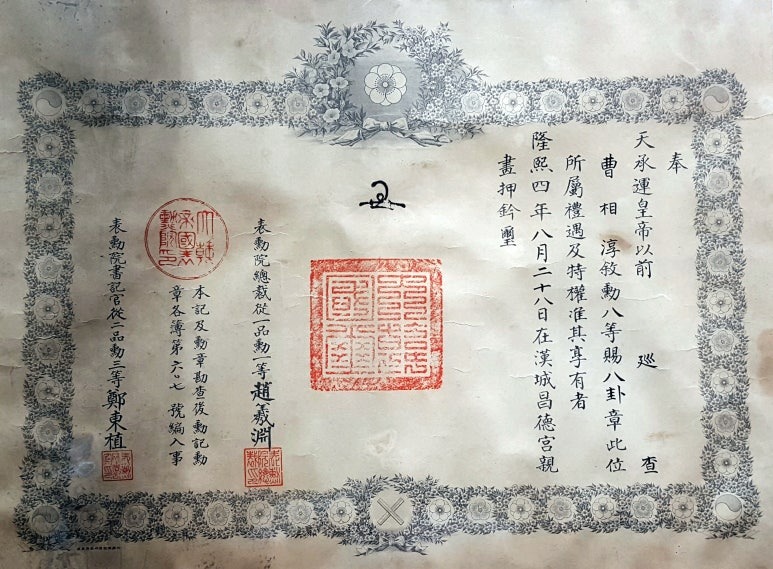 奉
天承運皇帝以前 廵查
曹相淳敘勳八等賜八卦章此位
所屬禮遇及特權准其享有者
隆熙四年八月二十八日在漢城昌德宮親
畫押鈐璽
表勳院總裁從一品勳一等趙羲淵
大韓帝國表勳院印
本記及勳章勘查後勳記勳
章各簿第六〇七號編入事
表勳院書記官從二品勳三等鄭東植